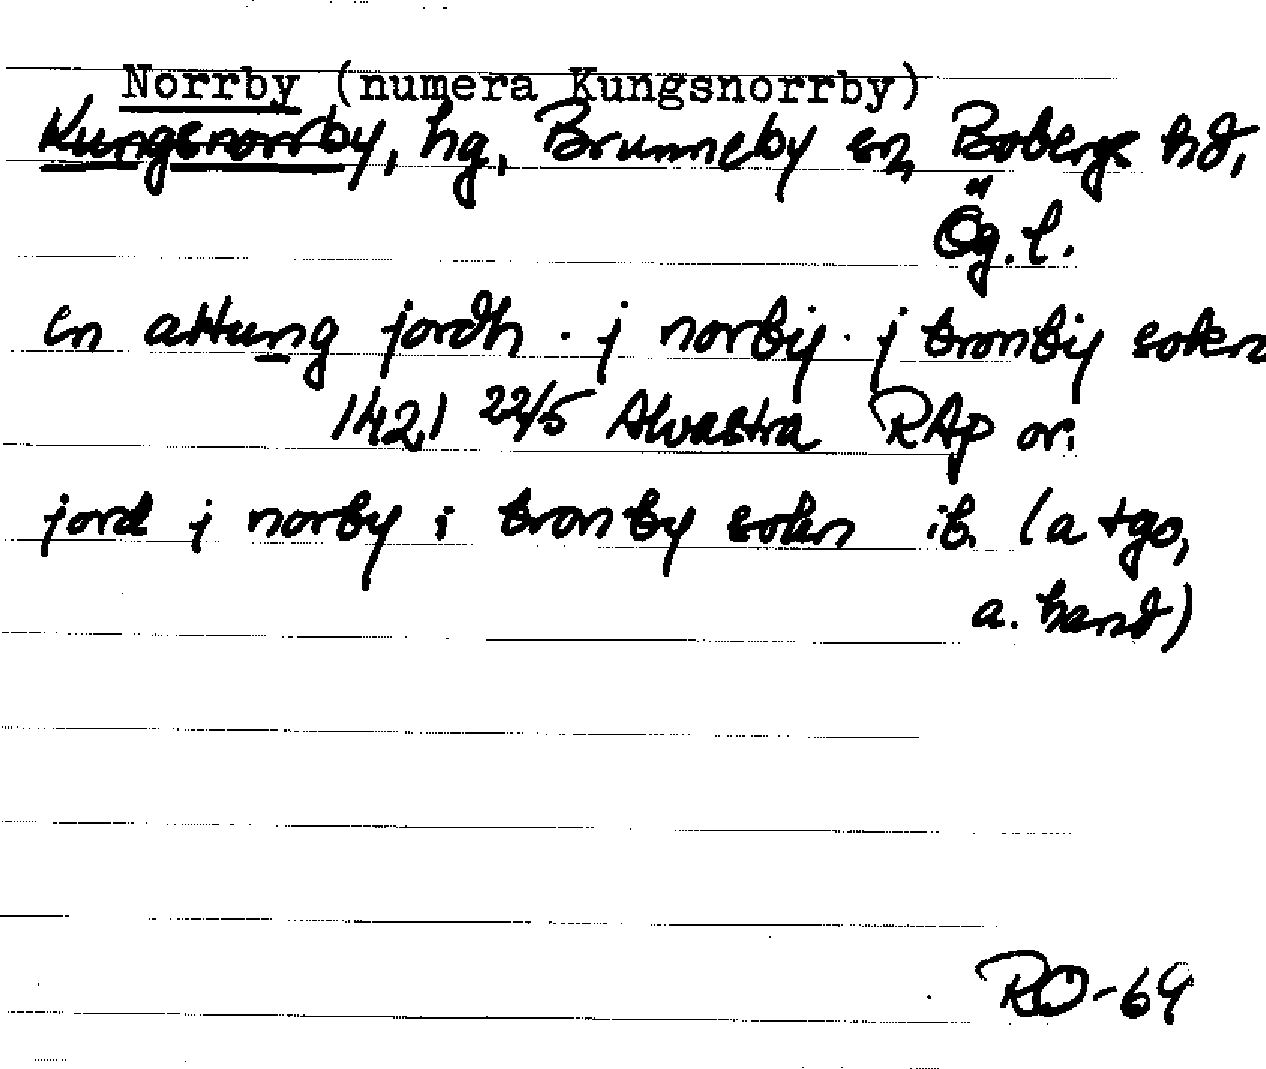 Norrby (numera Kungsnorrby)
Kungsnorrby, hg, Brunneby sn, Bobergs hd,
Ög. l.
en attung jordh . j norby . j bronby sokn
1421 22/5 Alvastra RAp or.
jord j norby i bronby sokn ib. (a tgo,
a. hand)
RO-69